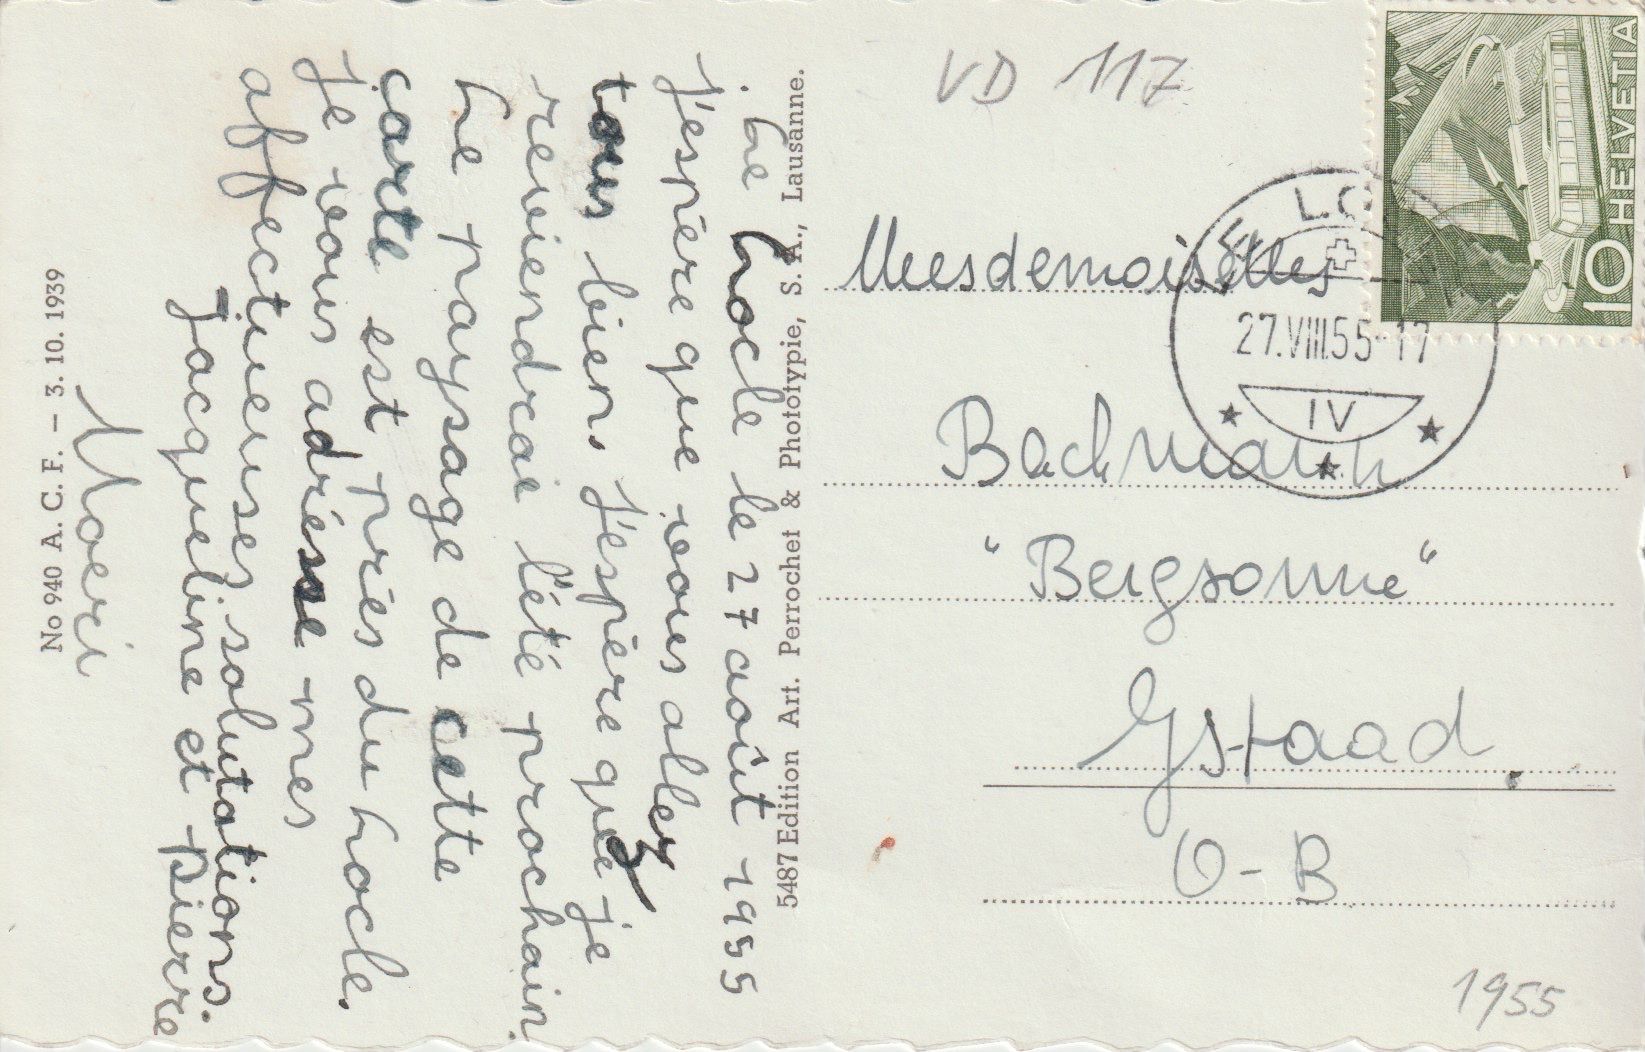 Le Locle le 27 août 1955
J'espère que vous allez
tous bien. J'espère que je
reviendrai l'été prochain.
Le paysage de cette
carte est près du Locle.
Je vous adrésse mes
affectueuses salutations.
Jacqueline et Pierre
Moeri
No 940 A. C. F. — 3. 10. 1939
5487 Edition Art. Perrochet & Phototypie, S. A., Lausanne.
VD 117
HELVETIA
10
LE LOC
27.VIII.55-17
IV
Meesdemoiselles
Bachmann
"Bergsonne"
Gstaad.
O-B
1955